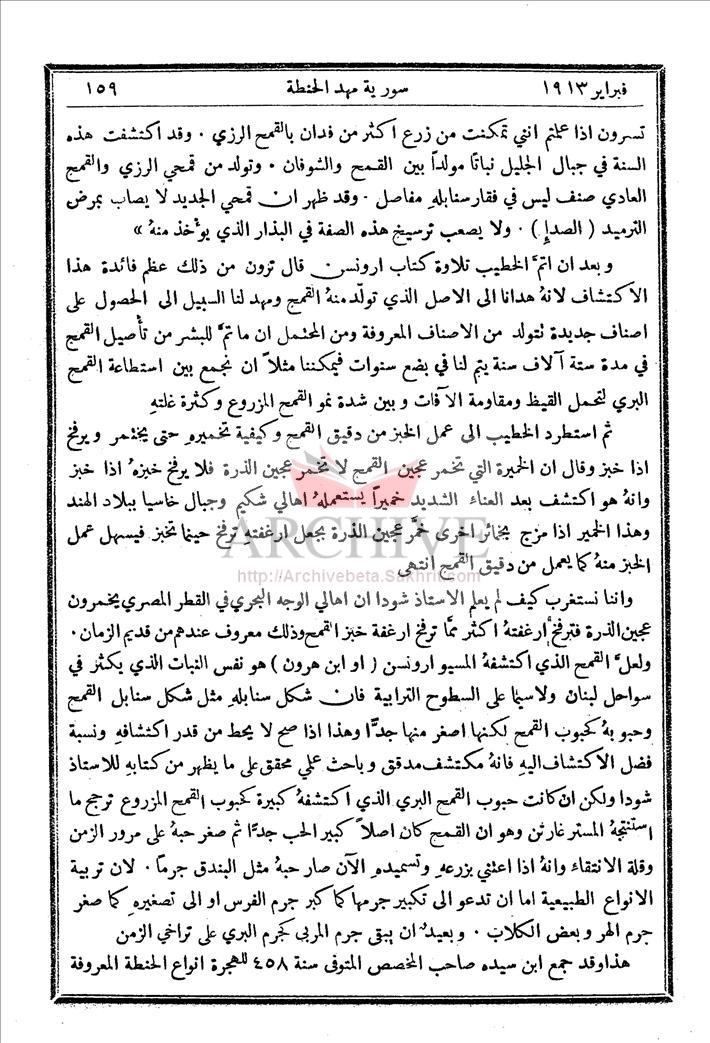 فبراير ١٩١٣ سورية مهد الحنطة ١٥٩
تسرون اذا علمتم انني تمكنت من زرع اكثر من فدان بالقمح الرزي . وقد اكتشفت هذه
السنة في جبال الجليل نباتًا مولدًا بين القمح والشوفان . وتولد من قمحي الرزي والقمح
العادي صنف ليس في فقار سنابلهِ مفاصل . وقد ظهر ان قمحي الجديد لا يصاب بمرض
الترميد ( الصدإ ) . ولا يصعب ترسيخ هذه الصفة في البذار الذي يوْخذ منهُ »
وبعد ان اتمَّ الخطيب تلاوة كتاب ارونسن قال ترون من ذلك عظم فائدة هذا
الاكتشاف لانهُ هدانا الى الاصل الذي تولَّد منهُ القمح ومهد لنا السبيل الى الحصول على
اصناف جديدة تتولد من الاصناف المعروفة ومن المحتمل ان ما تمَّ للبشر من تأصيل القمح
في مدة ستة آلاف سنة يتم لنا في بضع سنوات فيمكننا مثلاً ان نجمع بين استطاعة القمح
البري لتحمل القيظ ومقاومة الآفات وبين شدة نمو القمح المزروع وكثرة غلتهِ
ثم استطرد الخطيب الى عمل الخبز من دقيق القمح وكيفية تخميرهِ حتى يختمر ويرفخ
اذا خبز وقال ان الخميرة التي تخمر عجين القمح لا تخمر عجين الذرة فلا يرفخ خبزهُ اذا خبز
وانهُ هو اكتشف بعد العناء الشديد خميرًا يستعملهُ اهالي شكيم وجبال خاسيا ببلاد الهند
وهذا الخمير اذا مزج بخمائر اخرى خمَّر عجين الذرة بجعل ارغفتهِ ترفخ حينما تخبز فيسهل عمل
الخبز منهُ كما يعمل من دقيق القمح انتهى
ARCHIVE
http://Archivebeta.Sakhrit.com
واننا نستغرب كيف لم يعلم الاستاذ شودا ان اهالي الوجه البحري في القطر المصري يخمرون
عجين الذرة فترفخ ارغفتهُ اكثر ممَّا ترفخ ارغفة خبز القمح وذلك معروف عندهم من قديم الزمان .
ولعلَّ القمح الذي اكتشفهُ المسيو ارونسن ( او ابن هرون ) هو نفس النبات الذي يكثر في
سواحل لبنان ولاسيما على السطوح الترابية فان شكل سنابلهِ مثل شكل سنابل القمح
وحبوبهُ كحبوب القمح لكنها اصغر منها جدًّا وهذا اذا صح لا يحط من قدر اكتشافهِ ونسبة
فضل الاكتشاف اليهِ فانهُ مكتشف مدقق وباحث علمي محقق على ما يظهر من كتابهِ للاستاذ
شودا ولكن ان كانت حبوب القمح البري الذي اكتشفهُ كبيرة كحبوب القمح المزروع ترجح ما
استنتجهُ المستر غارثن وهو ان القمح كان اصلاً كبير الحب جدًّا ثم صغر حبهُ على مرور الزمن
وقلة الانتقاء وانهُ اذا اعتني بزرعهِ وتسميدهِ الآن صار حبهُ مثل البندق جرمًا . لان تربية
الانواع الطبيعية اما ان تدعو الى تكبير جرمها كما كبر جرم الفرس او الى تصغيرهِ كما صغر
جرم الهر وبعض الكلاب . وبعيدٌ ان يبقى جرم المربى كجرم البري على تراخي الزمن
هذا وقد جمع ابن سيده صاحب المخصص المتوفى سنة ٤٥٨ للهجرة انواع الحنطة المعروفة